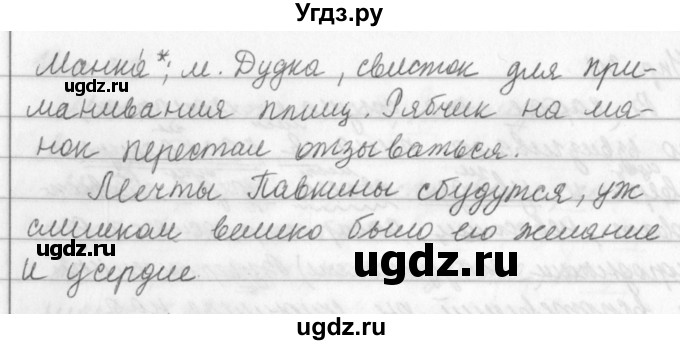 Угдз.ру
Манка́*; м. Дудка, свисток для при-
манивания птиц. Рябчик на ма-
нок перестал отзываться.
Мечты Павкины сбудутся, уж
слишком велико было его желание
и усердие
ugdz.ru
ugdz.ru
ugdz.ru
ugdz.ru
ugdz.ru